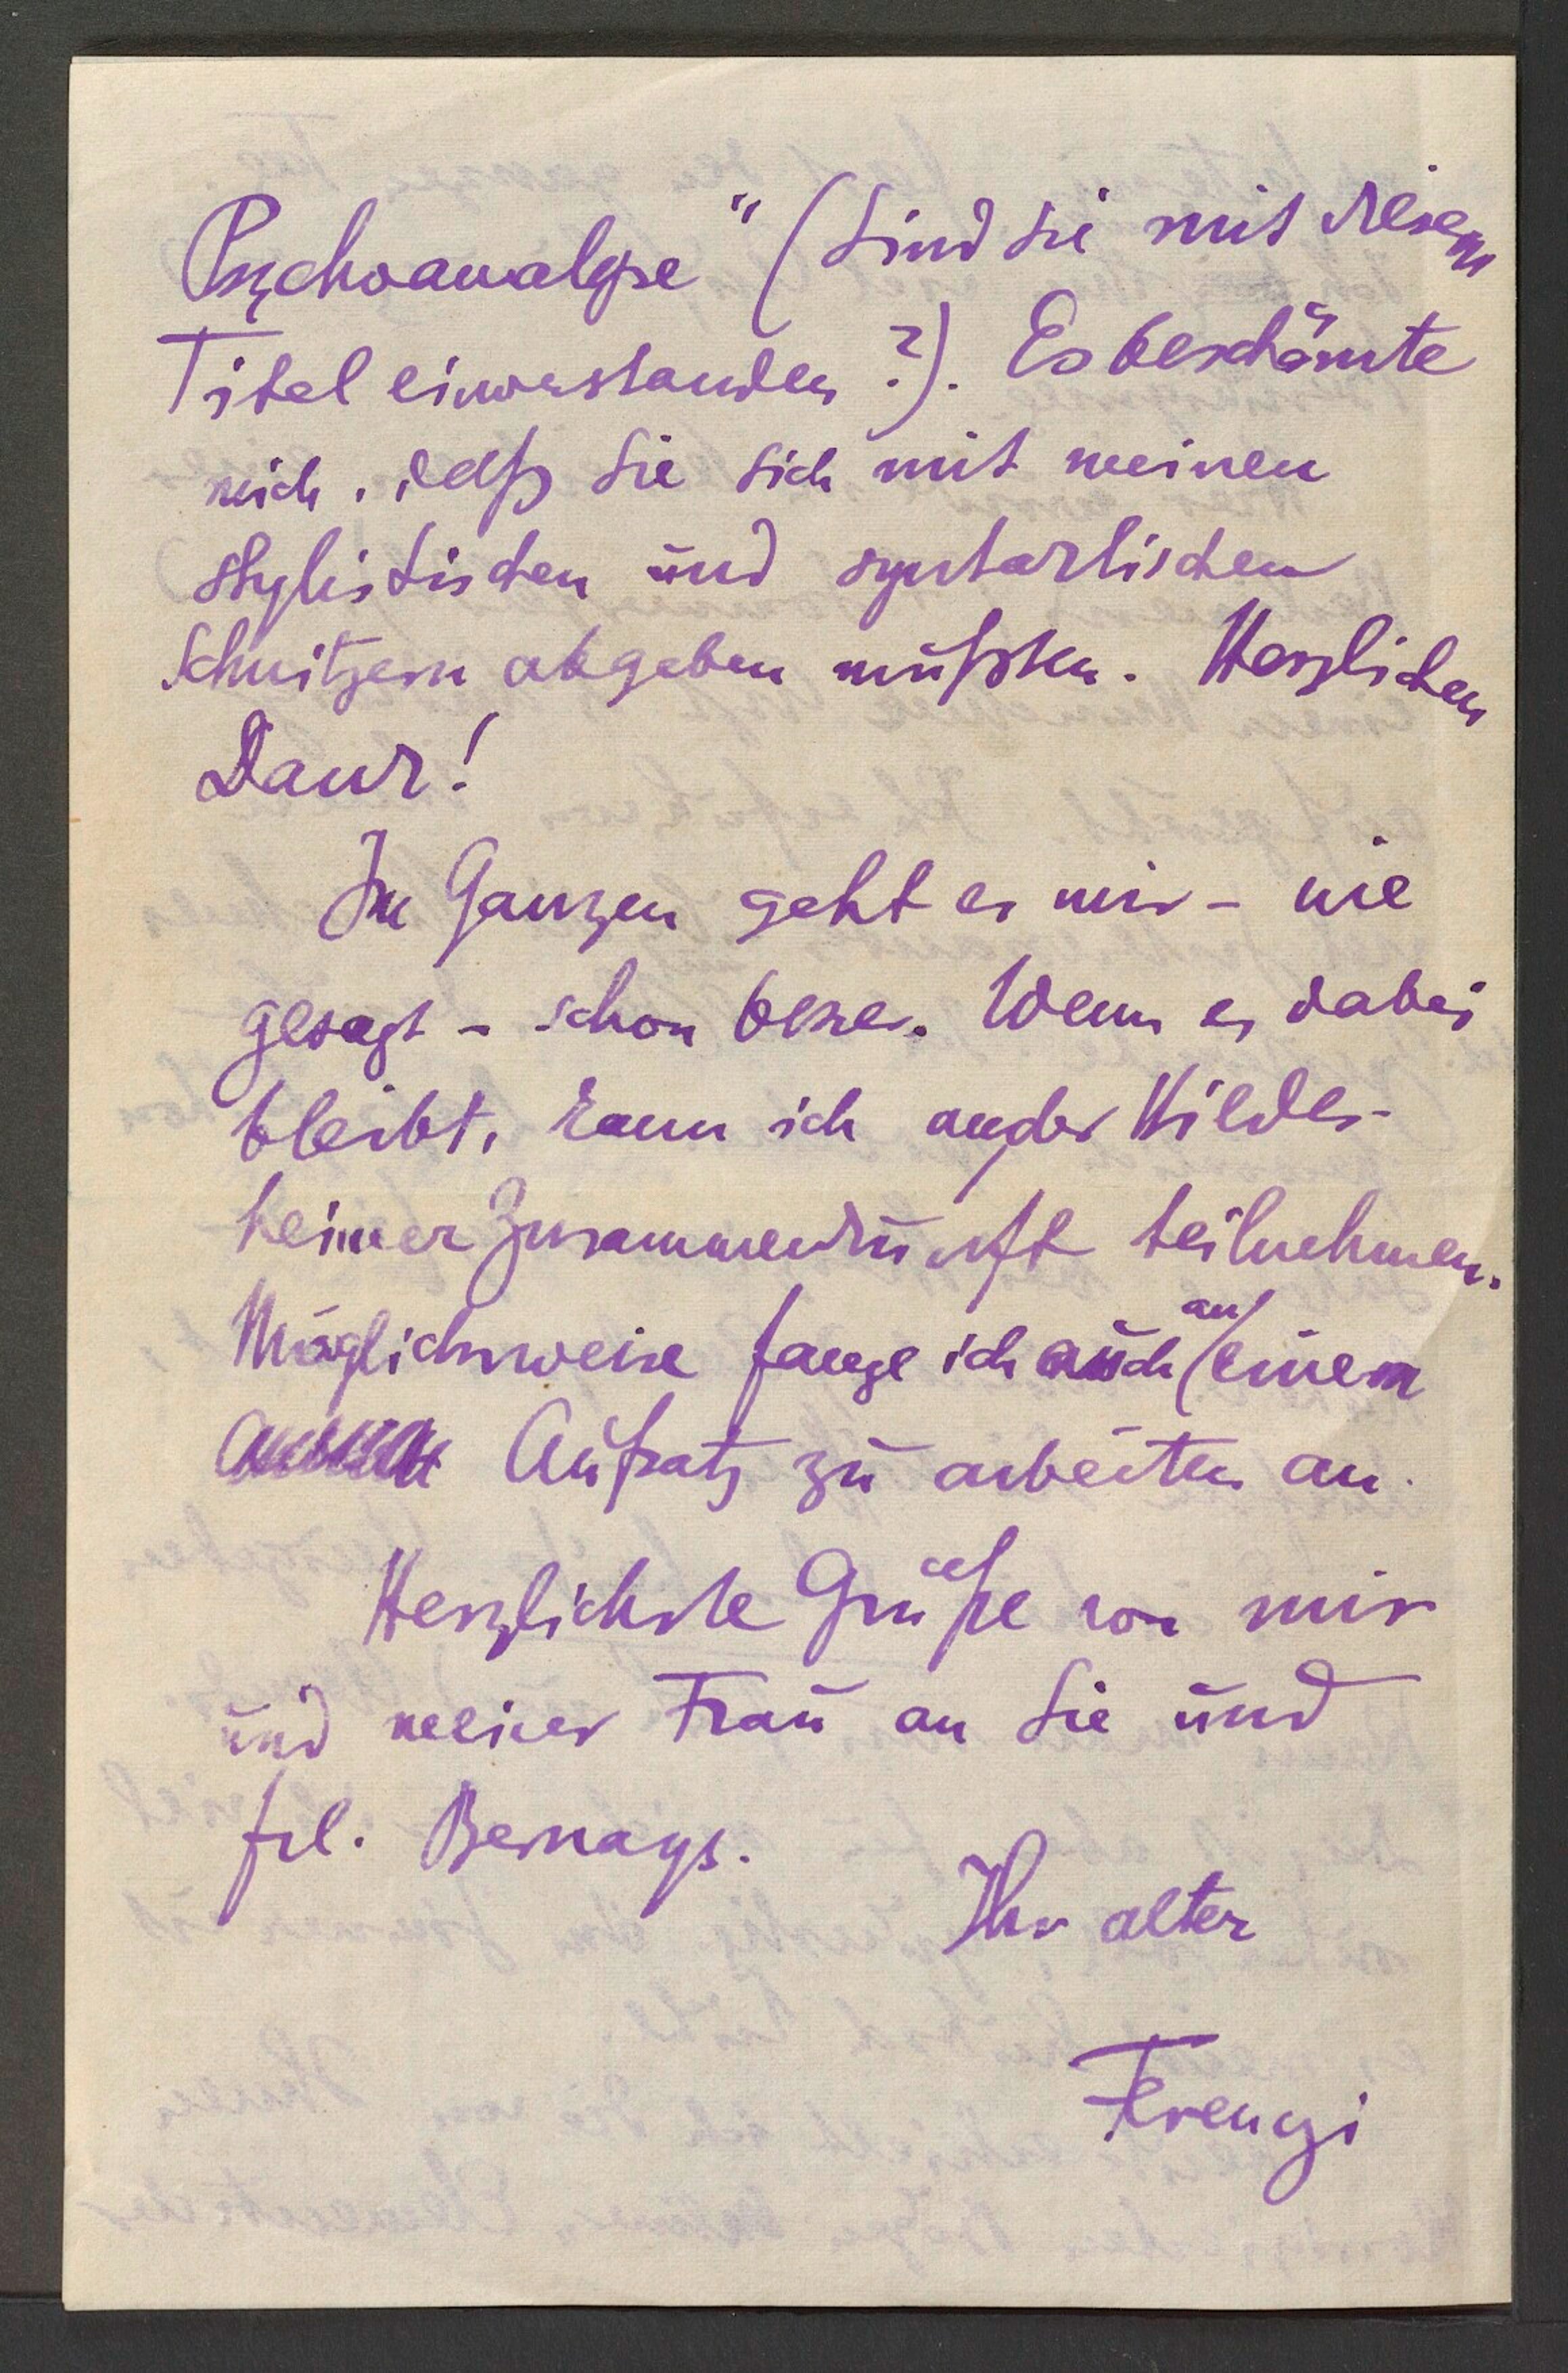 Psychoanalyse" (Sind Sie mit diesem
Titel einverstanden?). Es beschämte
mich, daß Sie sich mit meinen
stylistischen und syntaktischen
Schnitzern abgeben mußten. Herzlichen
Dank!
Im Ganzen geht es mir – wie
gesagt – schon besser. Wenn es dabei
bleibt, kann ich an der Hildes-
heimer Zusammenkunft teilnehmen.
Möglicherweise fange ich auch an einem
Aufsatz zu arbeiten an.
Herzlichste Grüße von mir
und meiner Frau an Sie und
Frl. Bernays.
Ihr alter
Ferenczi